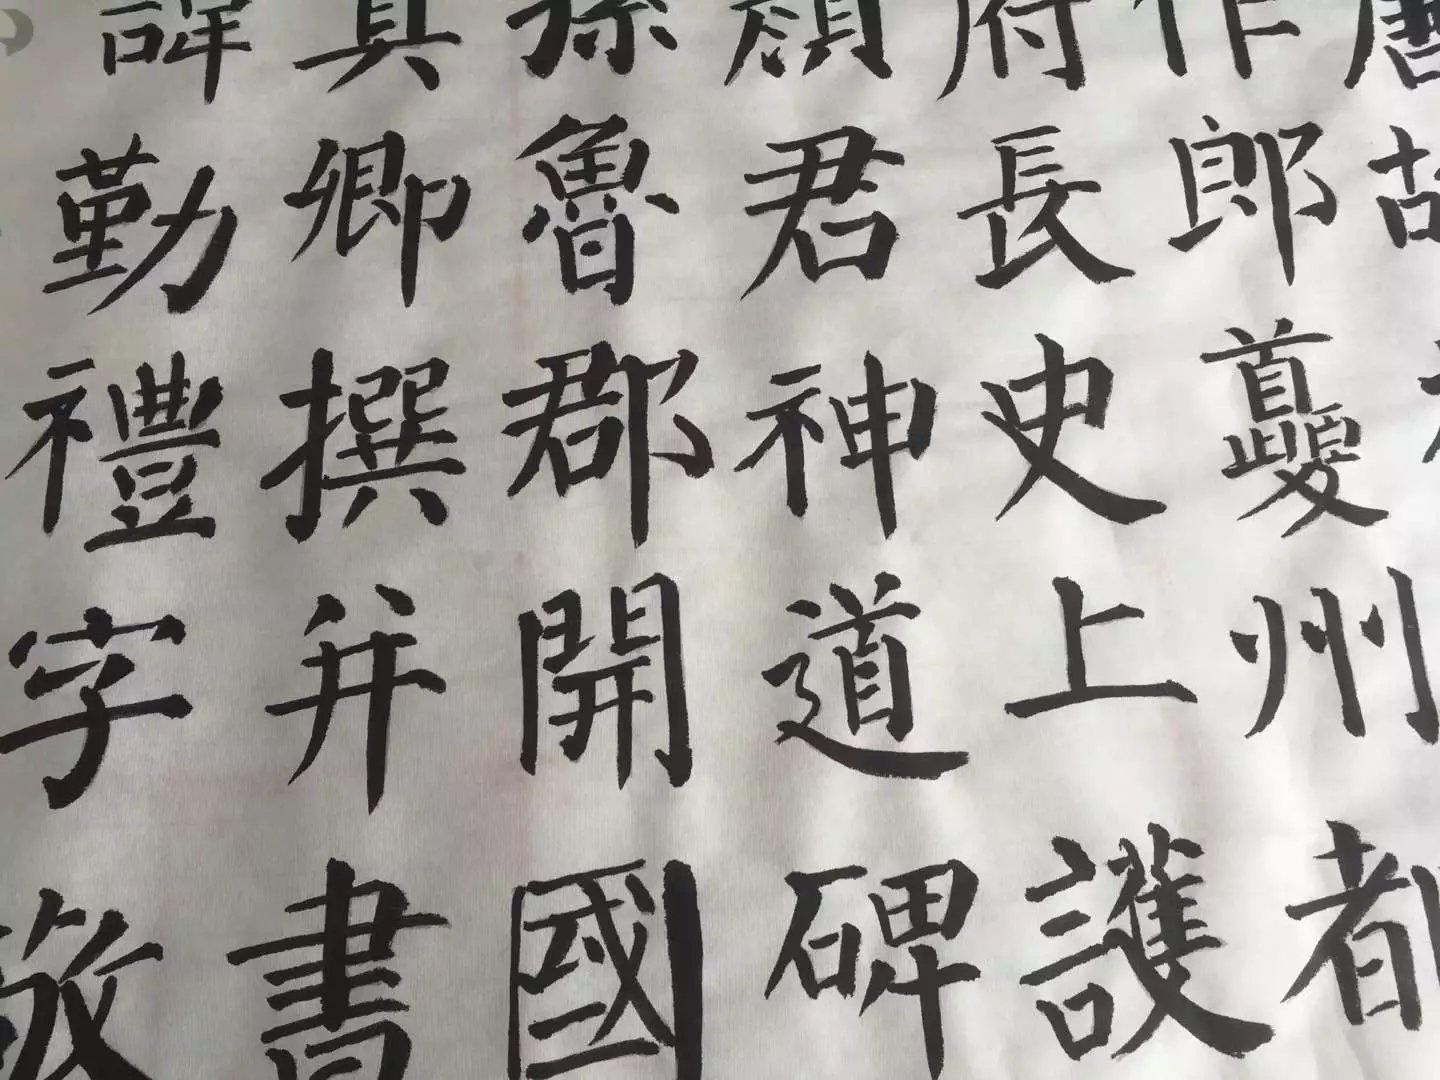 唐故
作郎夔州都
府長史上護
顏君神道碑
孫魯郡開國
真卿撰并書
諱勤禮字敬